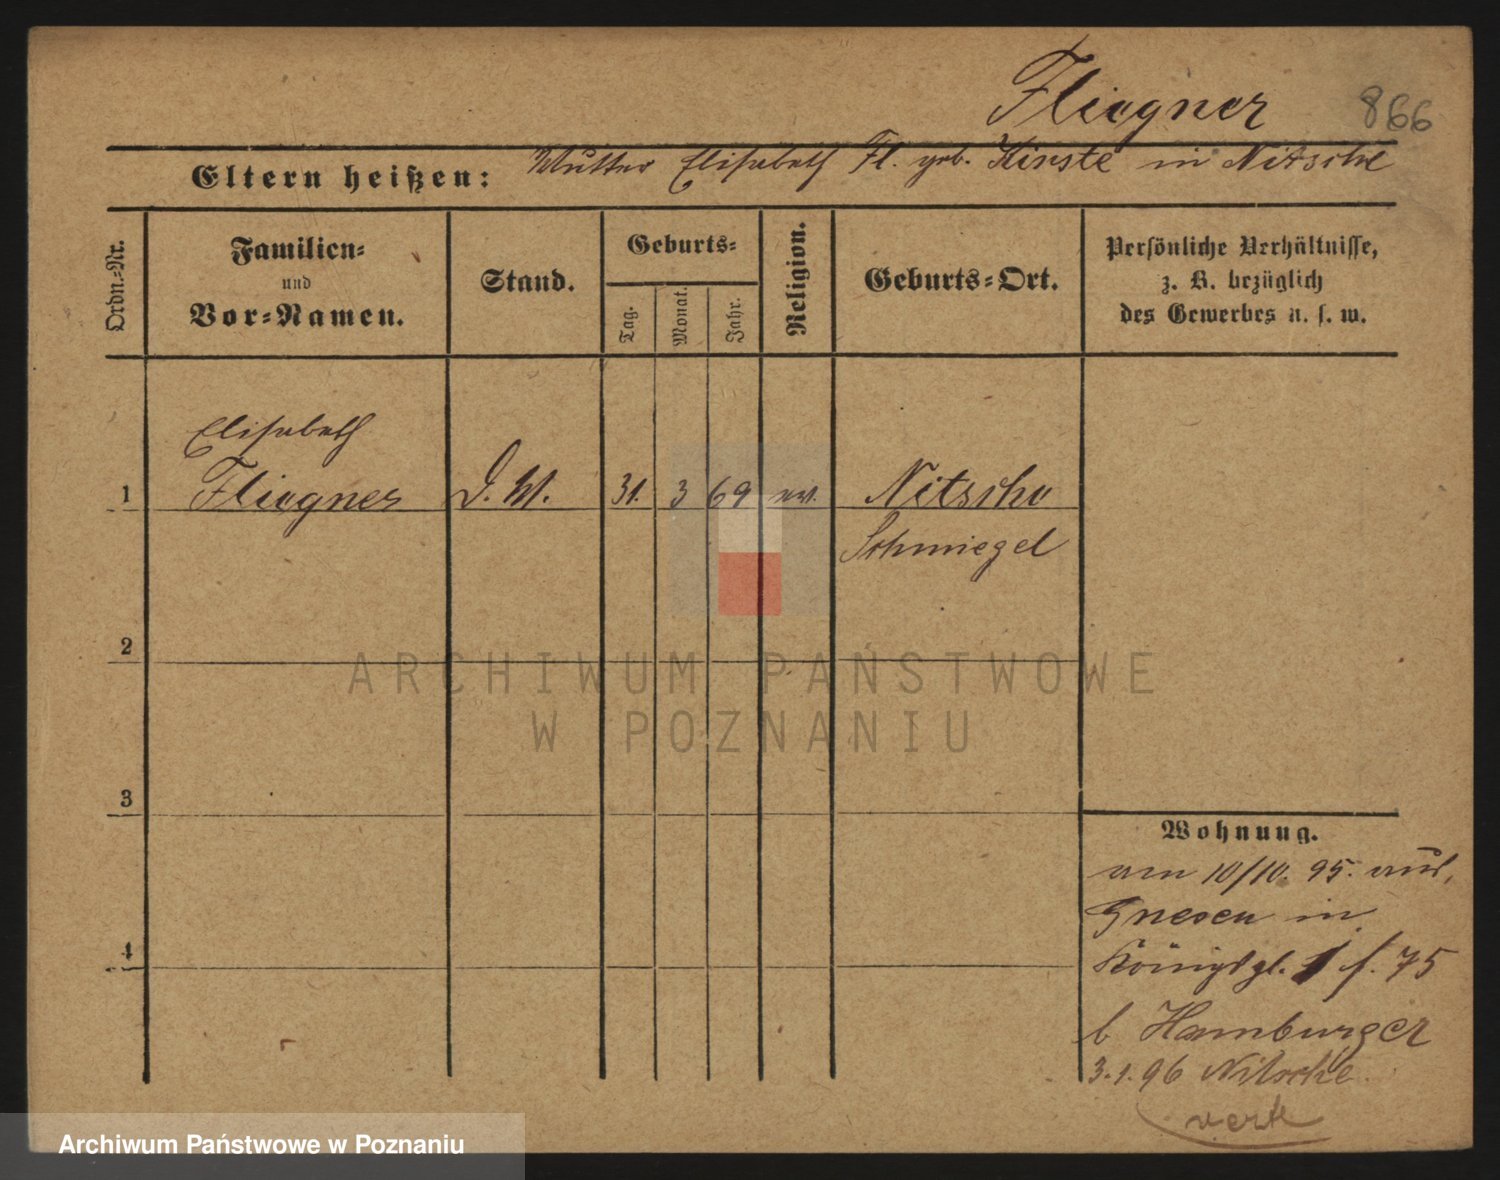 Fliegner 866
Eltern heißen: Mutter Elisabeth Fl. geb. Kirste in Nitsche
Ordn.-Nr.
Familien-
und
Vor-Namen.
Stand.
Geburts-
Tag.
Monat.
Jahr.
Religion.
Geburts-Ort.
Persönliche Verhältnisse,
z. B. bezüglich
des Gewerbes u. s. w.
Elisabeth
1 Fliegner D. M. 31. 3 69 ev. Nitsche
Schmiegel
2
ARCHIWUM PAŃSTWOWE
W POZNANIU
3
Wohnung.
am 10/10. 95. aus
Gnesen in
4
Königspl. 1 f. 75
b Hamburger
3.1.96 Nitsche
verte
Archiwum Państwowe w Poznaniu